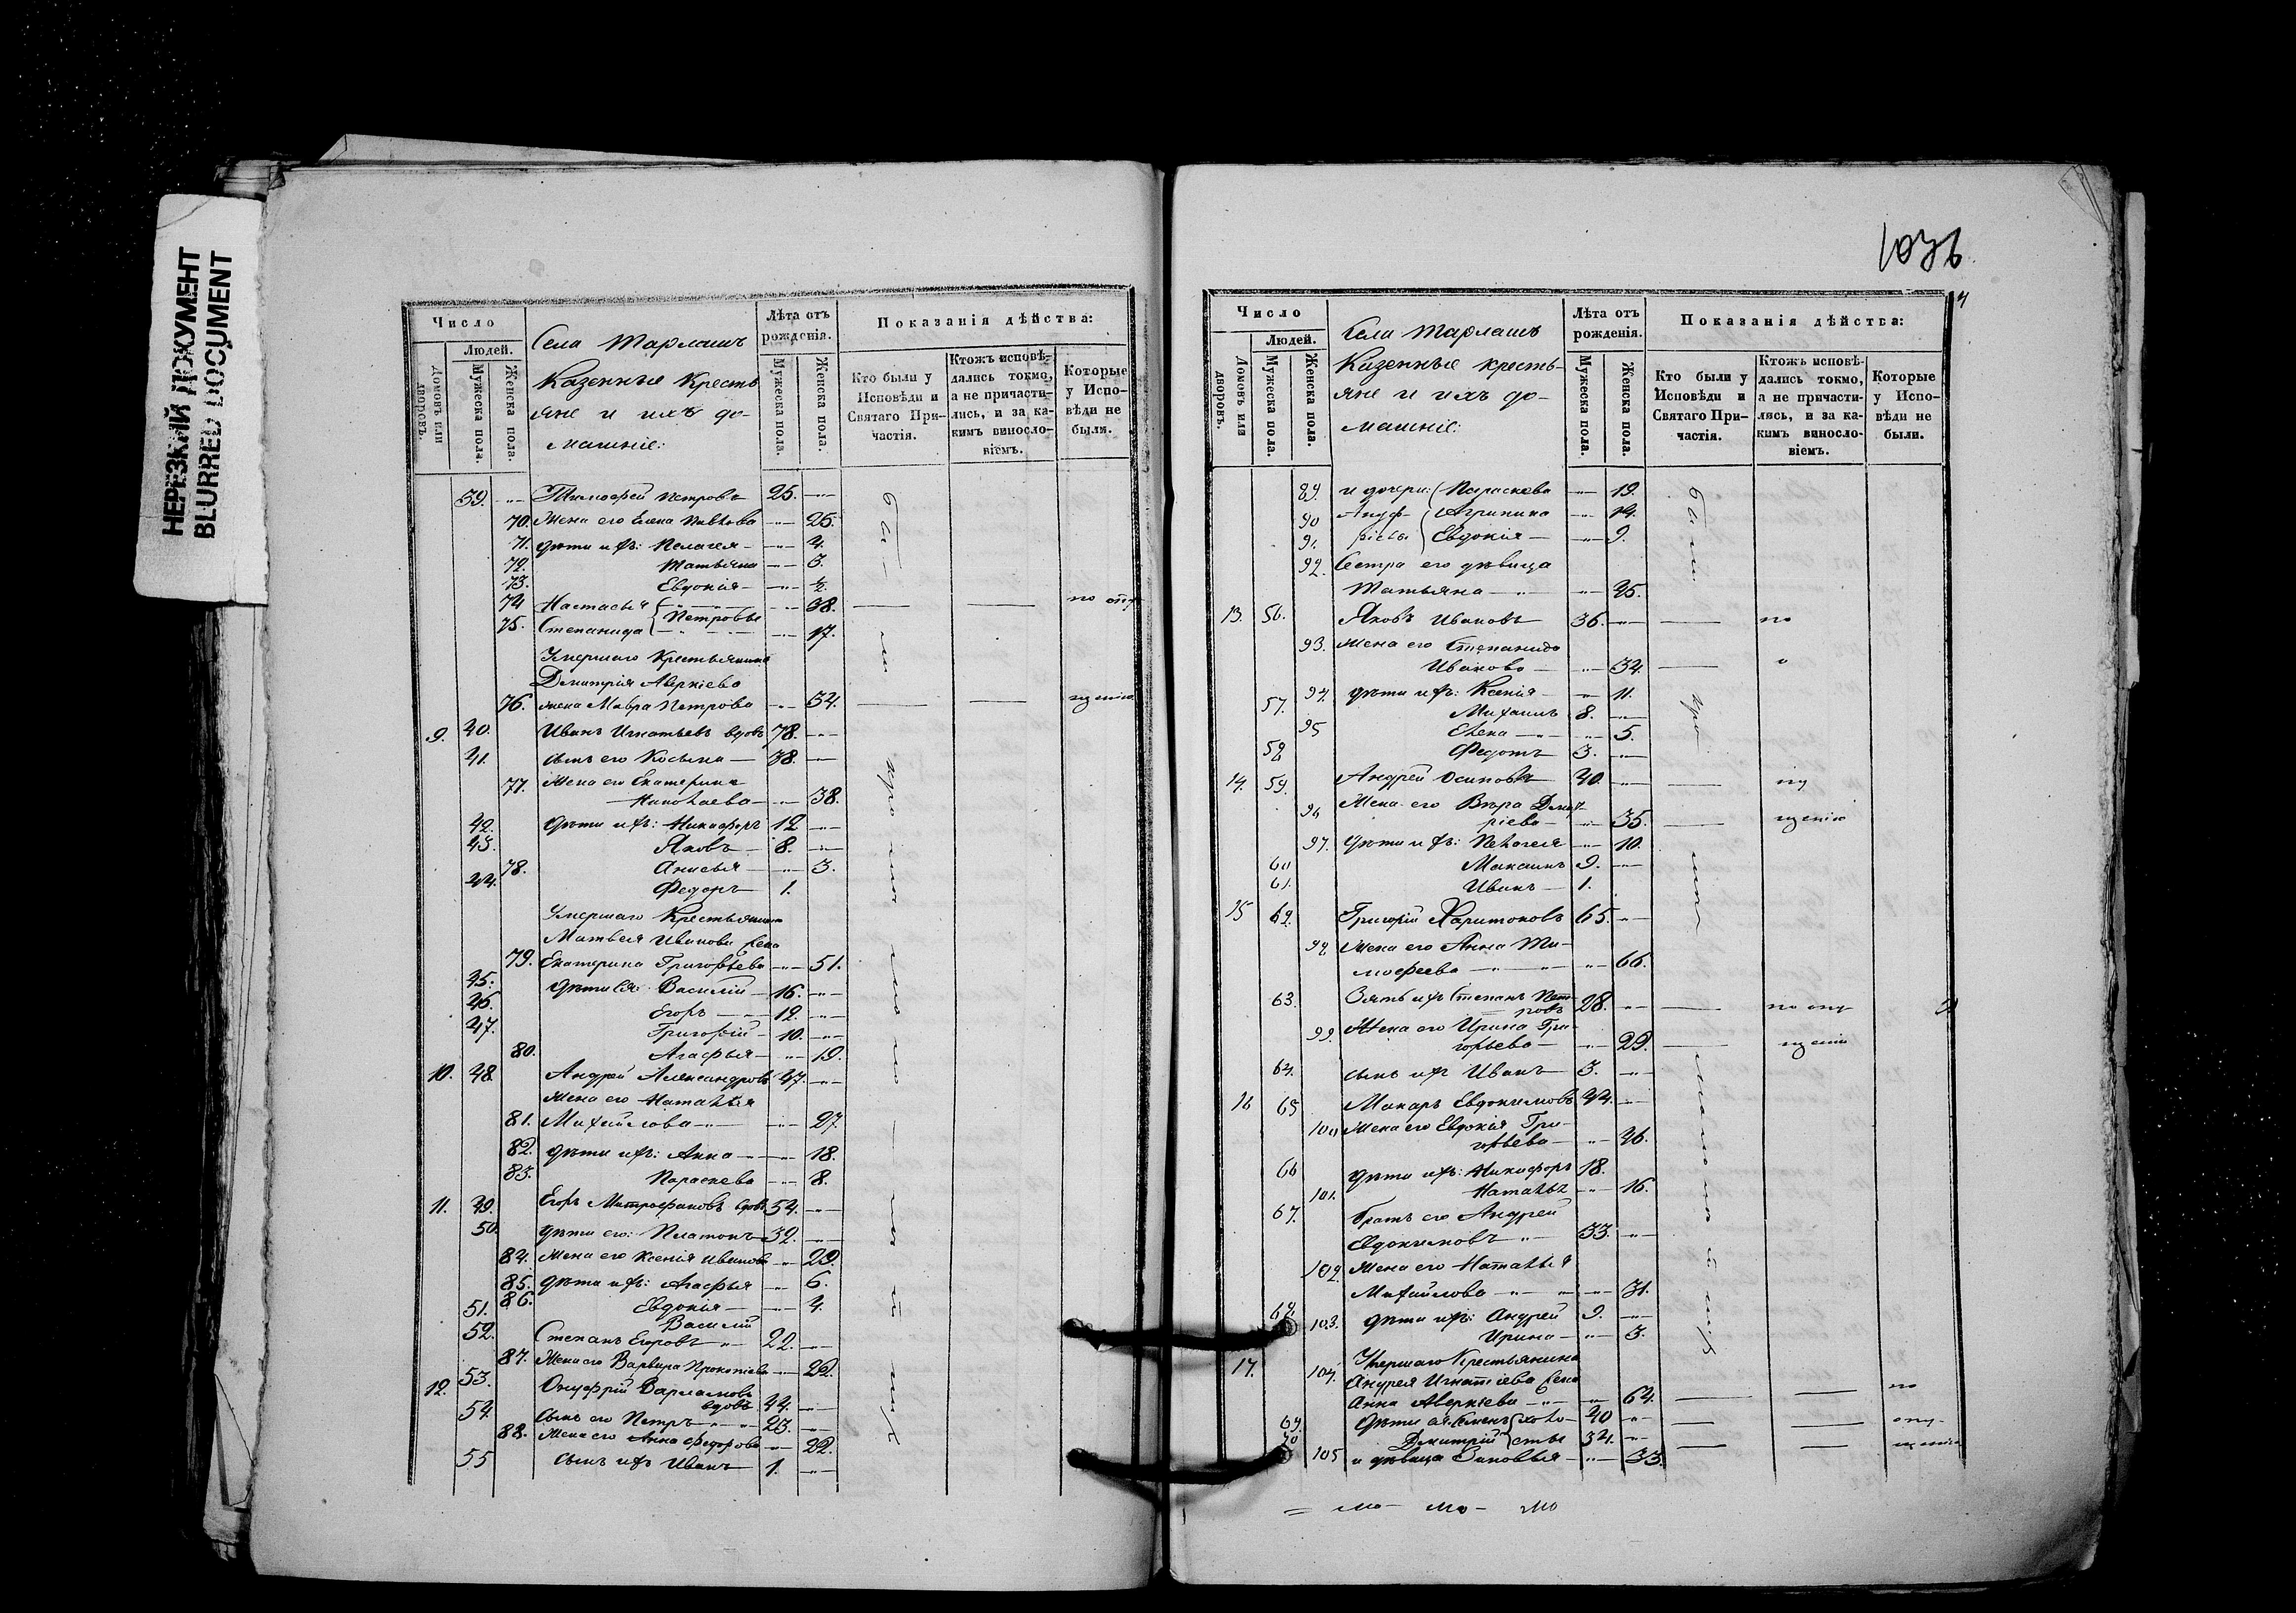 НЕРЕЗКИЙ ДОКУМЕНТ
BLURRED DOCUMENT
Число
Людей.
Домовъ или дворовъ.
Мужеска пола.
Женска пола.
Села Тарлашъ
Казенные Кресть
яне и ихъ до-
машніе:
Лѣта отъ рожденія.
Мужеска пола.
Женска пола.
Показанія дѣйства:
Кто были у Исповѣди и Святаго Причастія.
Ктожъ исповѣдались токмо, а не причастились, и за какимъ винословіемъ.
Которые у Исповѣди не были.
39. Тимофей Петровъ 25.
70. Жена его Елена Павлова 25.
71. дѣти ихъ: Пелагея 4.
72. Татьяна 3.
73. Евдокія ½
74 Настасья 38.
Петровы
75. Степанида 17.
Умершаго Крестьянина
Дмитрія Аверкіева
76. жена Мавра Петрова 54.
9. 40. Иванъ Игнатьевъ вдовъ 78.
41. сынъ его Косьма 38.
77. Жена его Екатерина
Николаева 38.
42. дѣти ихъ: Никифоръ 12
43. Яковъ 8.
78. Анисья 3.
44. Федоръ 1.
Умершаго Крестьянина
Матвея Иванова жена
79. Екатерина Григорьева 51.
45. дѣти ея: Василій 16.
46. Егоръ 12.
47. Григорій 10.
80. Агафья 19.
10. 48. Андрей Александровъ 47.
Жена его Наталья
81. Михайлова 47
82. дѣти ихъ: Анна 18.
83. Параскева 8.
11. 49. Егоръ Митрофановъ вдовъ 54.
50. дѣти его: Платонъ 32.
84. Жена его Ксенія Иванова 29.
85. дѣти ихъ: Агафья 6.
86. Евдокія 4.
51. Василій
52. Степанъ Егоровъ 22.
87. Жена его Варвара Прокопіева 22.
12. 53. Онуфрій Варламовъ
вдовъ 44.
54. Сынъ его Петръ 23.
88. Жена его Анна Федорова 22.
55 сынъ ихъ Иванъ 1.
4
Число
Людей.
Домовъ или дворовъ.
Мужеска пола.
Женска пола.
Села Тарлашъ
Казенные кресть-
яне и ихъ до-
машніе:
Лѣта отъ рожденія.
Мужеска пола.
Женска пола.
Показанія дѣйства:
Кто были у Исповѣди и Святаго Причастія.
Ктожъ исповѣдались токмо, а не причастились, и за какимъ винословіемъ.
Которые у Исповѣди не были.
89. и дочери: Параскева 19.
90 Онуф- Агрипина 14.
91. ріевы Евдокія 9.
92. Сестра его дѣвица
Татьяна 45.
13. 56. Яковъ Ивановъ 36. по
93. Жена его Степанида
Иванова 34. о
94. дѣти ихъ: Ксенія 11.
57. Михаилъ 8.
95 Елена 5.
58 Федотъ 3.
14. 59. Андрей Осиповъ 40. пу
96 Жена его Вѣра Дмит-
ріева 35. щенію
97. дѣти ихъ: Пелагея 10.
60 Максимъ 9.
61. Иванъ 1.
15 62. Григорій Харитоновъ 65.
98 Жена его Анна Ти-
мофеева 66.
63. Зять ихъ Степанъ Пет-
ровъ 28. по опу
99. Жена его Ирина Гри-
горьева 29. щенію
64. сынъ ихъ Иванъ 3.
16 65 Макаръ Евдокимовъ 44.
100 Жена его Евдокія Гри-
горьева 46.
66 дѣти ихъ: Никифоръ 18.
101. Наталья 16.
67. братъ его Андрей
Евдокимовъ 33.
102 Жена его Наталья
Михайлова 31.
68. дѣти ихъ: Андрей 9.
103. Ирина 3.
17. Умершаго Крестьянина
104. Андрея Игнатіева жена
Анна Аверкіева 64. по
69. дѣти ея: Семенъ холо- 40 опу-
70 Дмитрій стые 34.
105 и дѣвица Зиновья 33. щенію